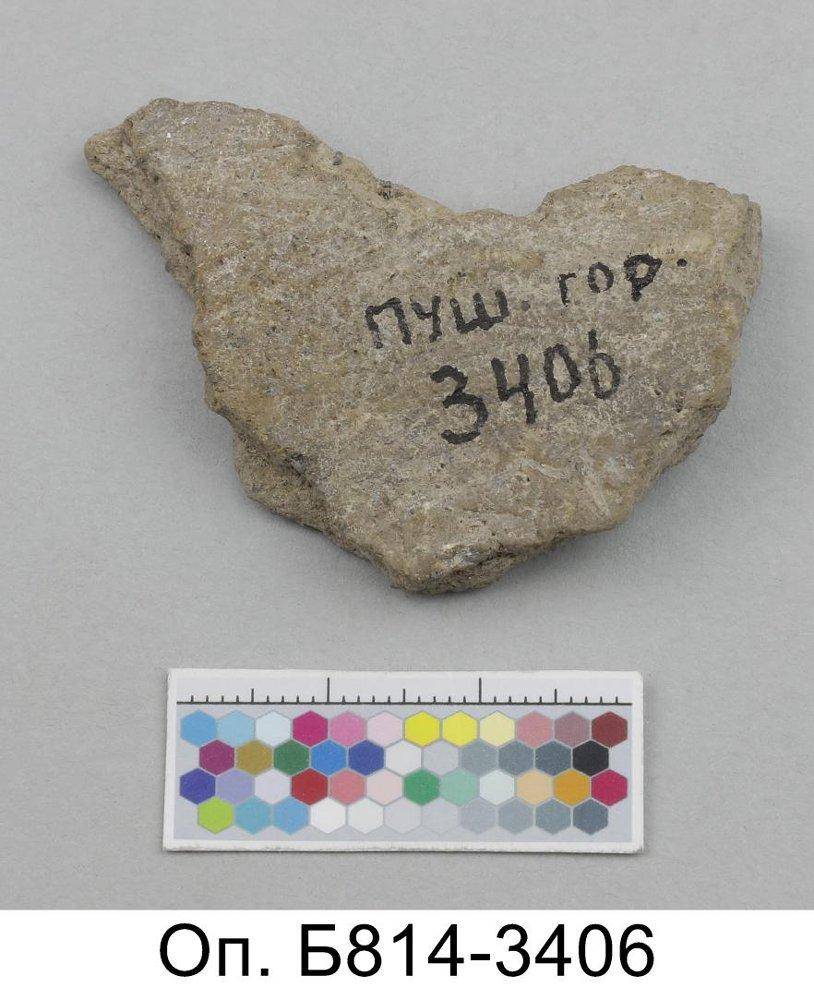 пуш. гор.
3406
Оп. Б814-3406